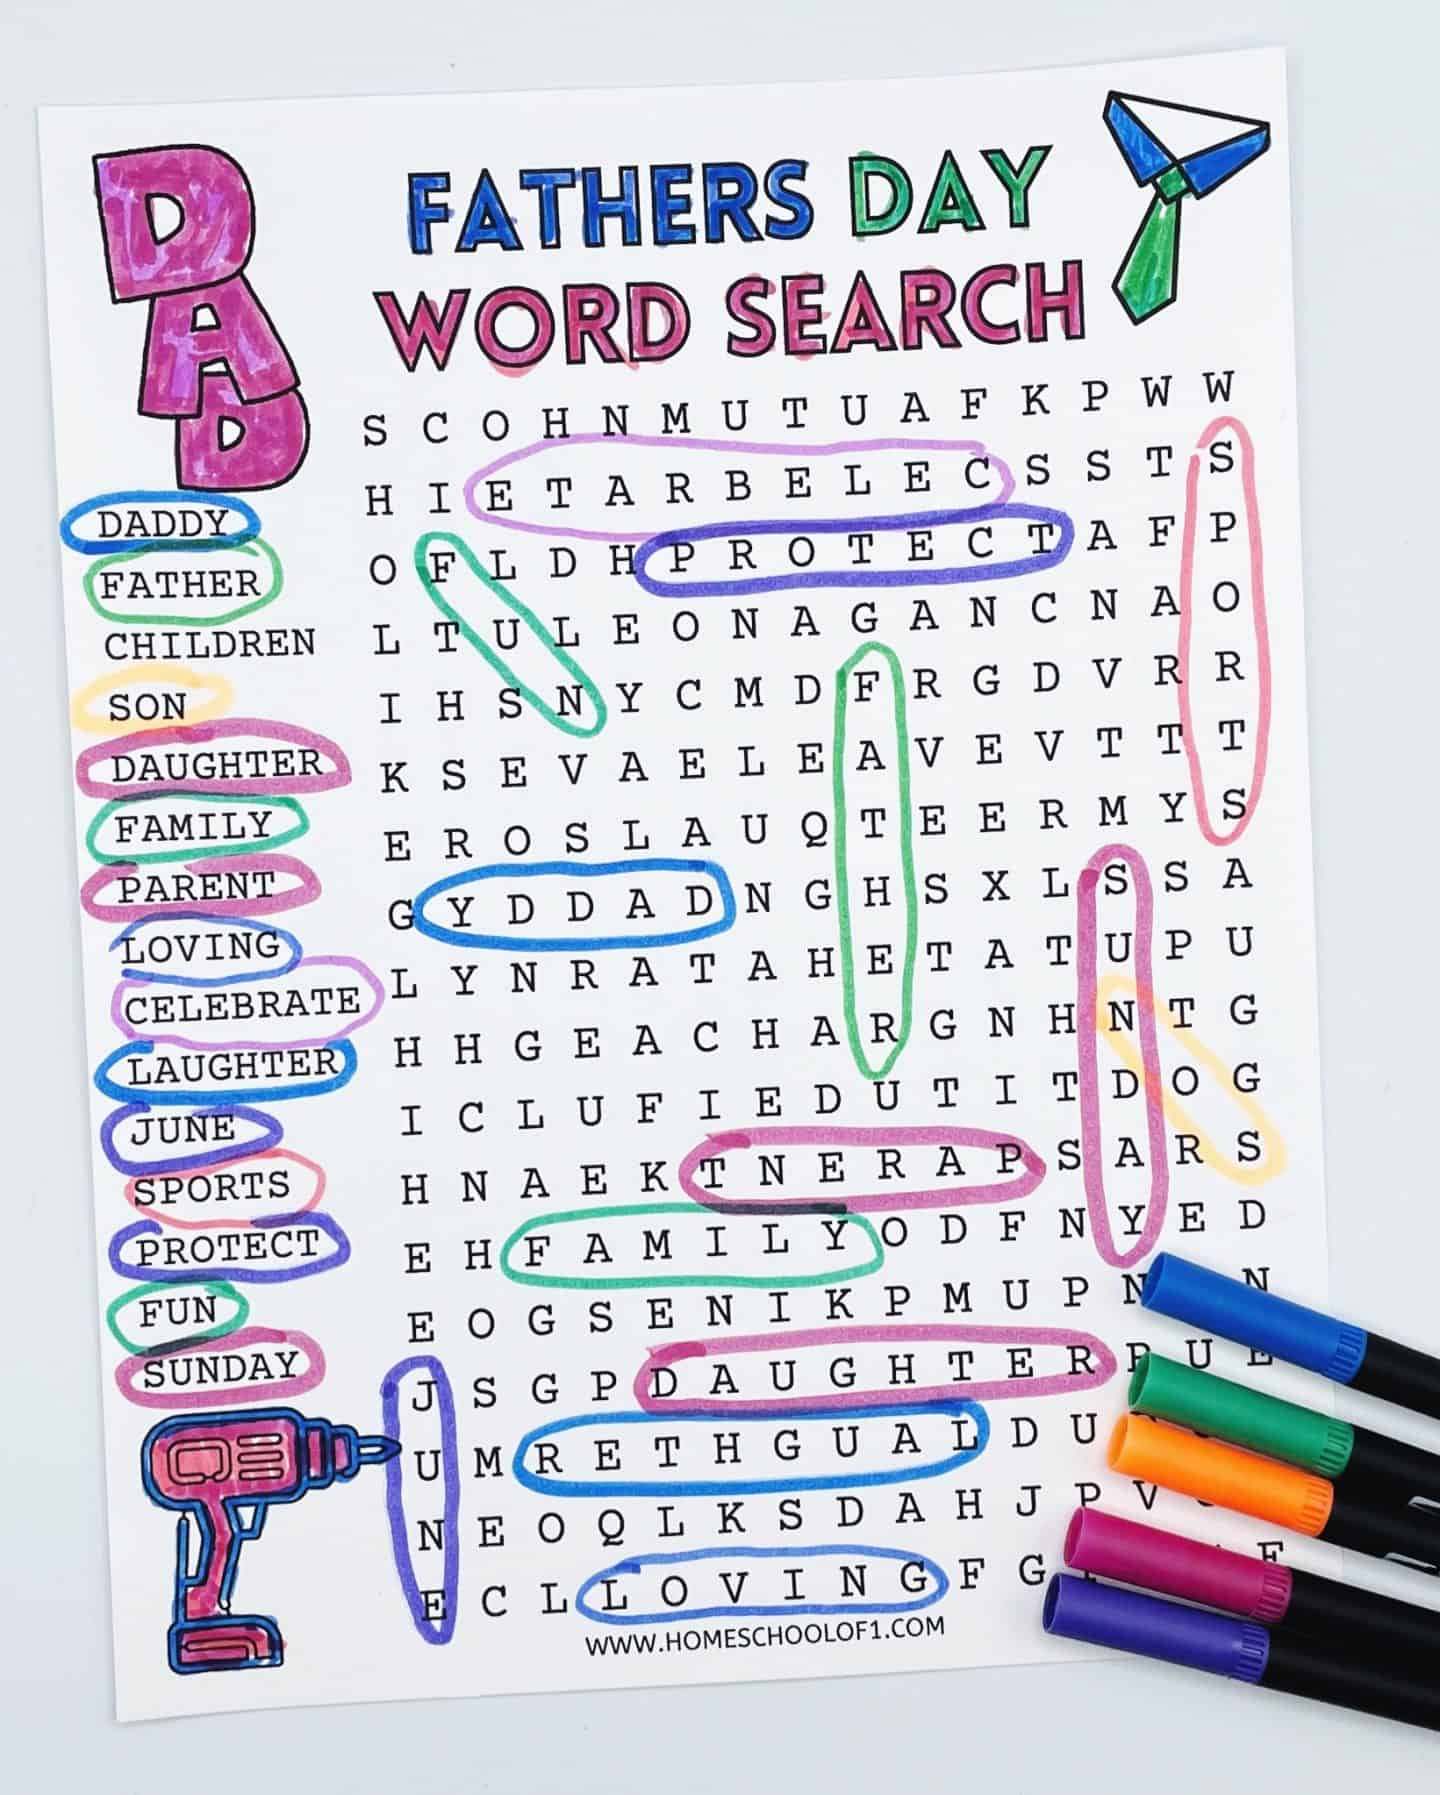 DAD
FATHERS DAY
WORD SEARCH
DADDY
FATHER
CHILDREN
SON
DAUGHTER
FAMILY
PARENT
LOVING
CELEBRATE
LAUGHTER
JUNE
SPORTS
PROTECT
FUN
SUNDAY
S C O H N M U T U A F K P W W
H I E T A R B E L E C S S T S
O F L D H P R O T E C T A F P
L T U L E O N A G A N C N A O
I H S N Y C M D F R G D V R R
K S E V A E L E A V E V T T T
E R O S L A U Q T E E R M Y S
G Y D D A D N G H S X L S S A
L Y N R A T A H E T A T U P U
H H G E A C H A R G N H N T G
I C L U F I E D U T I T D O G
H N A E K T N E R A P S A R S
E H F A M I L Y O D F N Y E D
E O G S E N I K P M U P N N
J S G P D A U G H T E R P U E
U M R E T H G U A L D U
N E O Q L K S D A H J P V
E C L L O V I N G F G
WWW.HOMESCHOOLOF1.COM